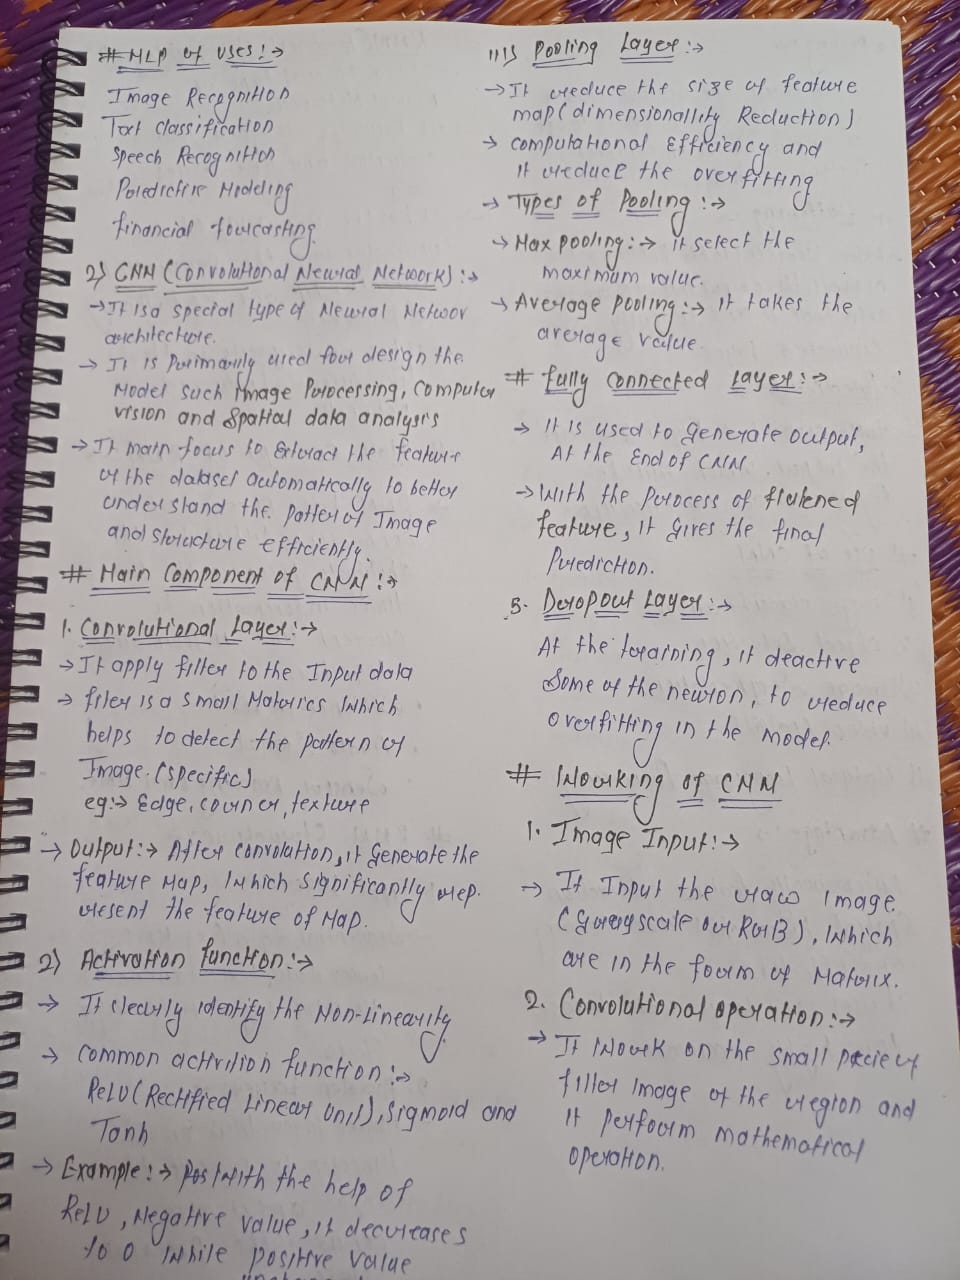 # MLP of uses :→
Image Recognition
Text classification
Speech Recognition
Predictive Modeling
financial forcasting.
2) CNN (Convolutional Neural Network) :→
→ It is a special type of Neural Networ
architecture.
→ It is Primarily used for design the
Model such Image Processing, Computer
vision and Spatial data analysis
→ It main focus to Extract the feature
of the dataset automatically to better
understand the patter of Image
and structure efficiently.
# Main Component of CNN :→
1. Convolutional Layer :→
→ It apply filter to the Input data
→ filer is a small Matrics which
helps to detect the pattern of
Image. (specific)
eg :→ Edge, corner, texture
→ Output :→ After convolation, it Generate the
feature Map, which significantly rep.
resent the feature of Map.
2) Activation function :→
→ It clearly identify the Non-Linearity
→ Common activition function :→
ReLU (Rectified Linear Unit), Sigmoid and
Tanh
→ Example :→ with the help of
ReLU, Negative value, it decreases
to 0 while positive value
iii) Pooling Layer :→
→ It reduce the size of feature
map (dimensionallity Reduction)
→ computational Efficiency and
it reduce the overfitting
→ Types of Pooling :→
→ Max pooling :→ it select the
maximum value.
→ Average pooling :→ it takes the
average value.
# fully connected Layer :→
→ It is used to generate output,
At the End of CNN.
→ With the process of flatened
feature, it gives the final
Prediction.
5. Dropout Layer :→
At the training, it deactive
some of the neuron, to reduce
overfitting in the model.
# Working of CNN
1. Image Input :→
→ It Input the raw image
(Grayscale or RGB), which
are in the form of Matrix.
2. Convolutional operation :→
→ It work on the small pecie of
filter image of the region and
it perform mathematical
operation.